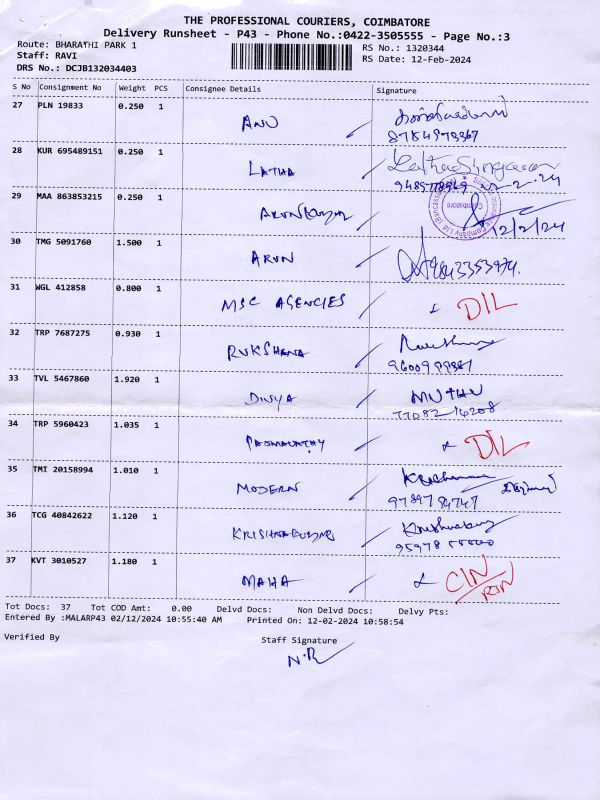 THE PROFESSIONAL COURIERS, COIMBATORE
Delivery Runsheet - P43 - Phone No.:0422-3505555 - Page No.:3
Route: BHARATHI PARK 1 RS No.: 1320344
Staff: RAVI RS Date: 12-Feb-2024
DRS No.: DCJB132034403
S No Consignment No Weight PCS Consignee Details Signature
27 PLN 19833 0.250 1
ANU
28 KUR 695489151 0.250 1
LATHA
29 MAA 863853215 0.250 1
ARUNKUMAR 12/2/24
30 TMG 5091760 1.500 1
ARUN 9843353974.
31 WGL 412858 0.800 1
MSC AGENCIES DIL
32 TRP 7687275 0.930 1
RUKSHANA
33 TVL 5467860 1.920 1
DIVYA MUTHU
34 TRP 5960423 1.035 1
PADMAVATHY DIL
35 TMI 20158994 1.010 1
MODERN
36 TCG 40842622 1.120 1
KRISHNAKUMAR
37 KVT 3010527 1.180 1
MAHA CIN
RTN
Tot Docs: 37 Tot COD Amt: 0.00 Delvd Docs: Non Delvd Docs: Delvy Pts:
Entered By :MALARP43 02/12/2024 10:55:40 AM Printed On: 12-02-2024 10:58:54
Verified By Staff Signature
N.R